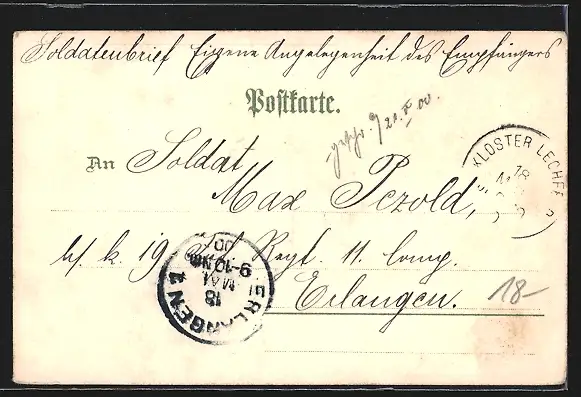 Soldatenbrief Eigene Angelegenheit des Empfängers
Postkarte.
21. V 00.
An Soldat
Max Pezold,
k. 19 Inf. Regt. 11. Comp.
Erlangen.
KLOSTER LECHFE
18
ERLANGEN 2
18
MAI
9-10 NM
00
18-